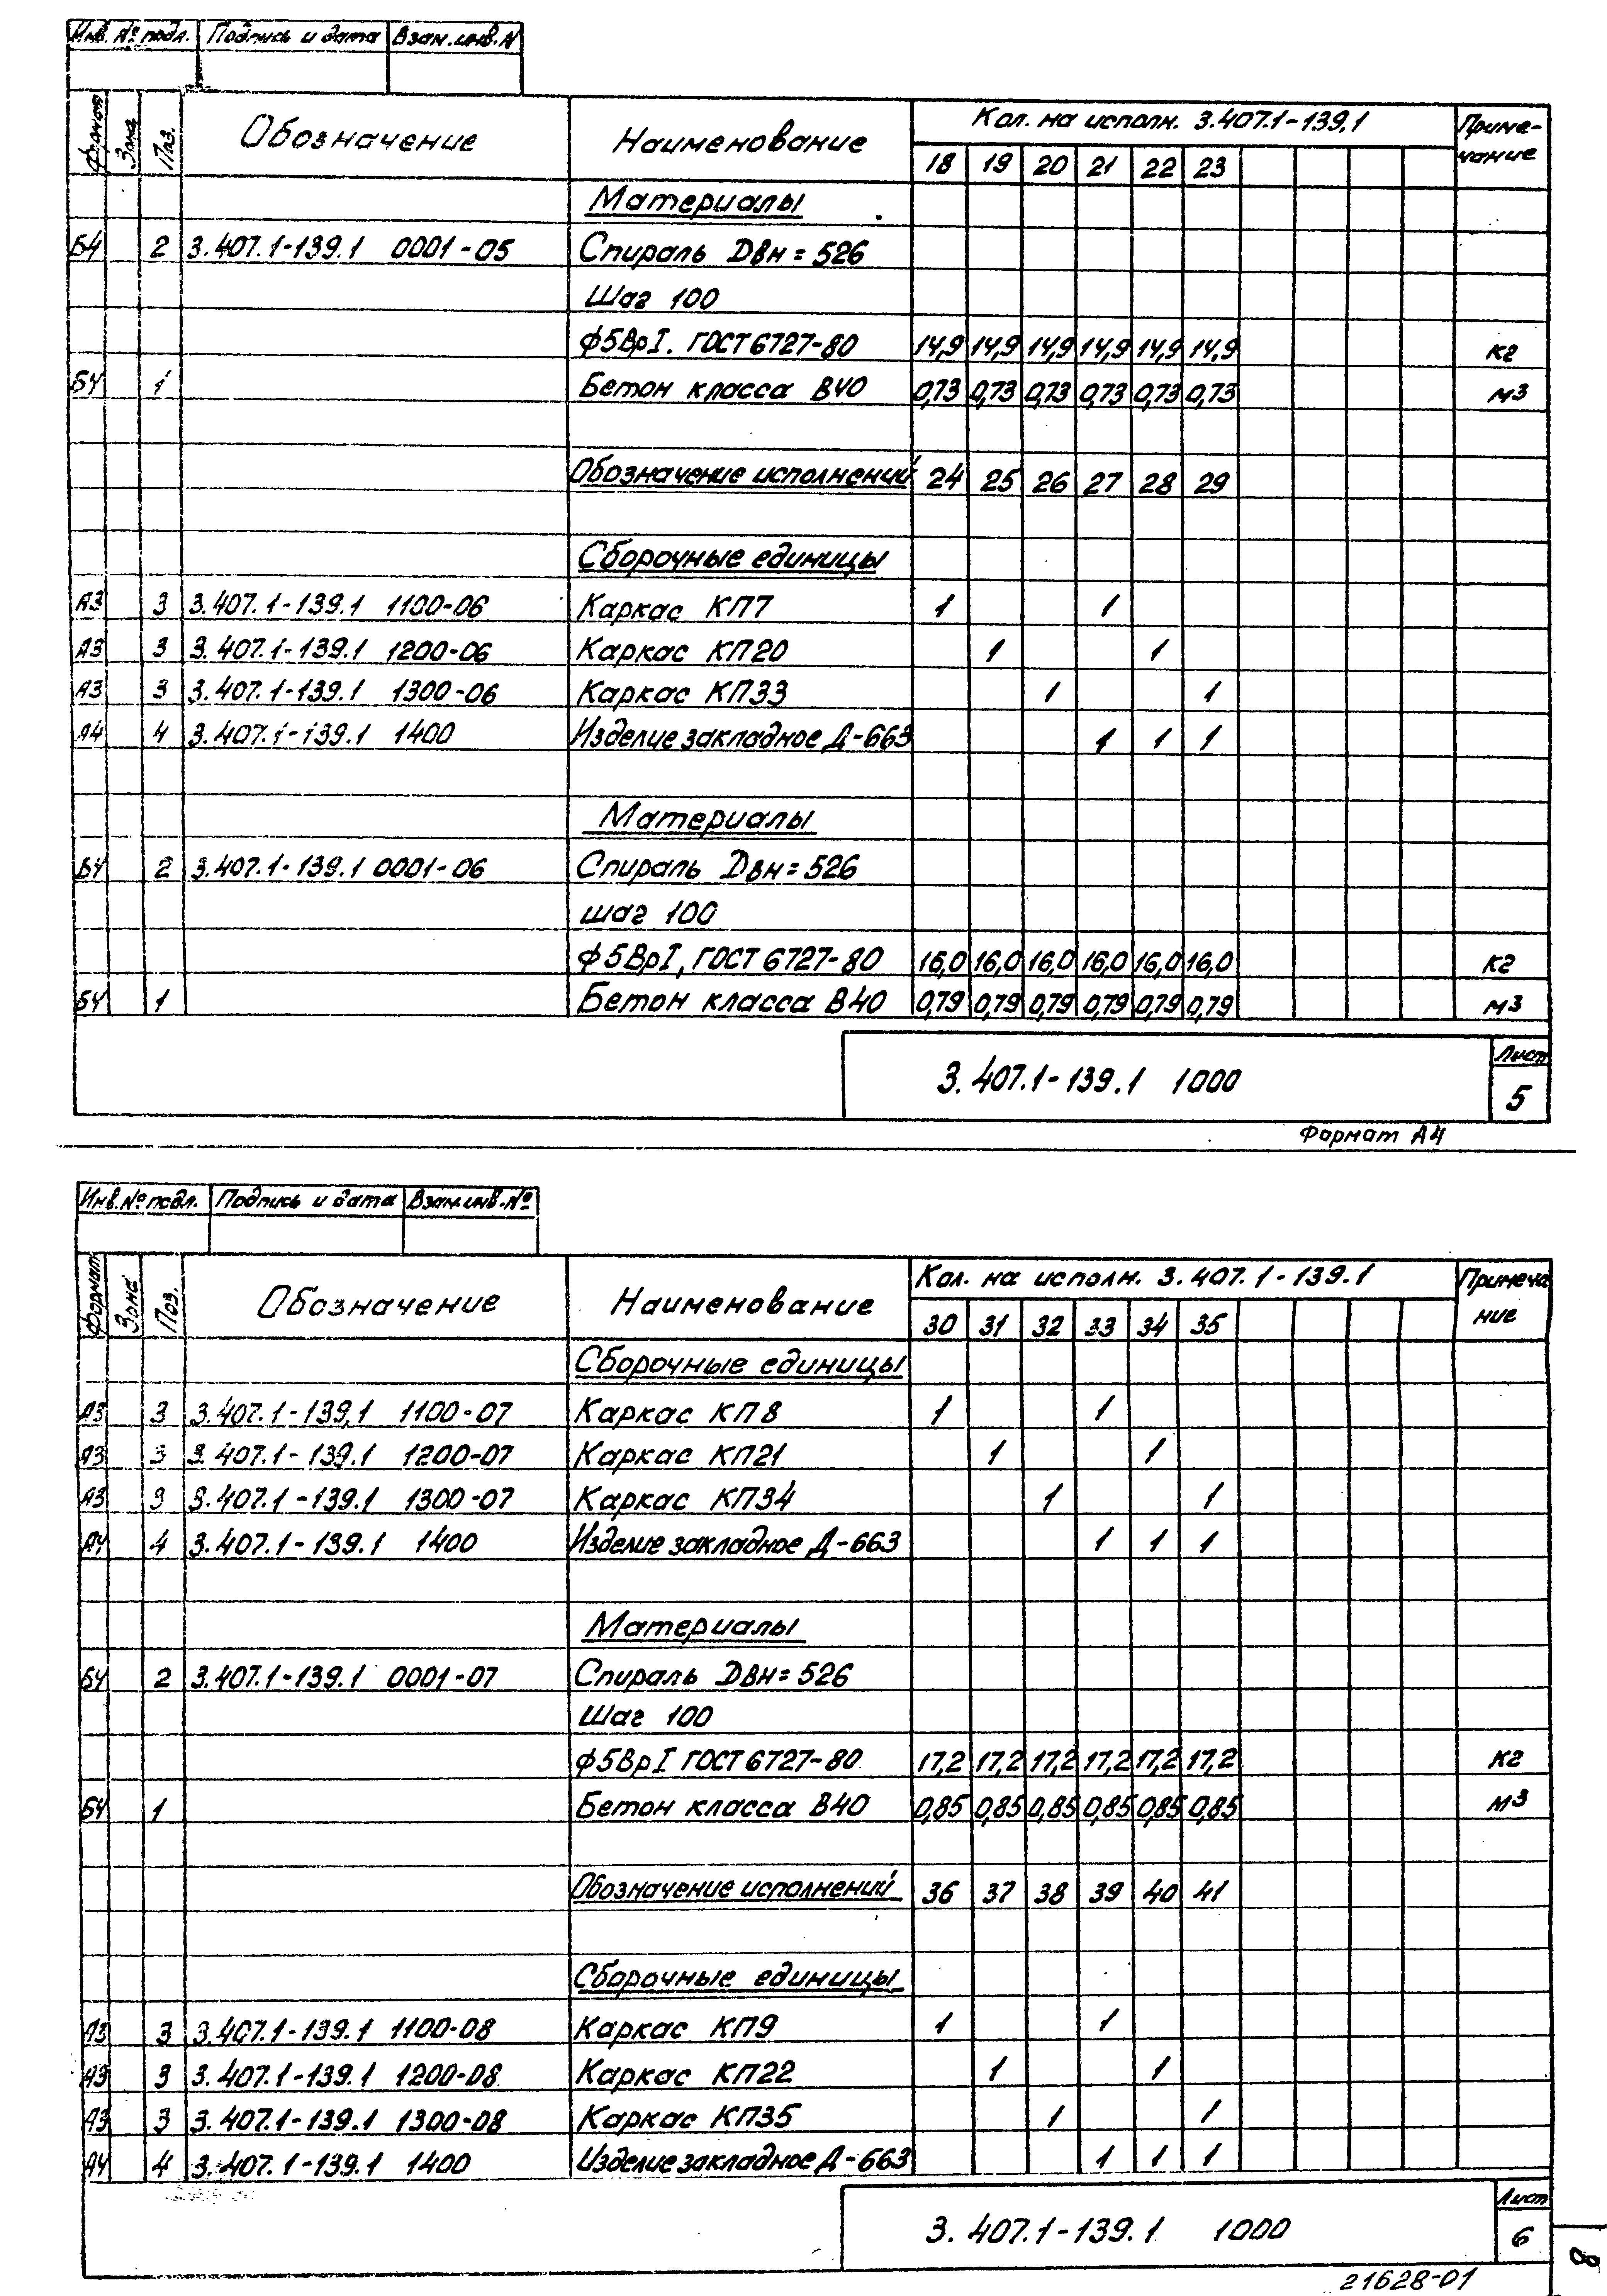 Инв. № подл. Подпись и дата Взам.инв.N
Формат Зона Поз. Обозначение Наименование Кол. на исполн. 3.407.1-139.1 Приме-
18 19 20 21 22 23 чание
Материалы
Б4 2 3.407.1-139.1 0001-05 Спираль Dвн=526
Шаг 100
ф5ВрI. ГОСТ 6727-80 14,9 14,9 14,9 14,9 14,9 14,9 кг
БЧ 1 Бетон класса В40 0,73 0,73 0,73 0,73 0,73 0,73 м3
Обозначение исполнений 24 25 26 27 28 29
Сборочные единицы
А3 3 3.407.1-139.1 1100-06 Каркас КП7 1 1
А3 3 3.407.1-139.1 1200-06 Каркас КП20 1 1
А3 3 3.407.1-139.1 1300-06 Каркас КП33 1 1
А4 4 3.407.1-139.1 1400 Изделие закладное Д-663 1 1 1
Материалы
БЧ 2 3.407.1-139.1 0001-06 Спираль Dвн=526
шаг 100
ф5ВрI, ГОСТ 6727-80 16,0 16,0 16,0 16,0 16,0 16,0 кг
БЧ 1 Бетон класса В40 0,79 0,79 0,79 0,79 0,79 0,79 м3
3.407.1-139.1 1000 Лист
5
Формат А4
Инв.№ подл. Подпись и дата Взам.инв.№
Формат Зона Поз. Обозначение Наименование Кол. на исполн. 3.407.1-139.1 Примеча
30 31 32 33 34 35 ние
Сборочные единицы
А3 3 3.407.1-139,1 1100-07 Каркас КП8 1 1
А3 3 3.407.1-139.1 1200-07 Каркас КП21 1 1
А3 3 3.407.1-139.1 1300-07 Каркас КП34 1 1
А4 4 3.407.1-139.1 1400 Изделие закладное Д-663 1 1 1
Материалы
БЧ 2 3.407.1-139.1 0001-07 Спираль Dвн=526
Шаг 100
ф5ВрI ГОСТ 6727-80 17,2 17,2 17,2 17,2 17,2 17,2 кг
БЧ 1 Бетон класса В40 0,85 0,85 0,85 0,85 0,85 0,85 м3
Обозначение исполнений 36 37 38 39 40 41
Сборочные единицы
А3 3 3.407.1-139.1 1100-08 Каркас КП9 1 1
А3 3 3.407.1-139.1 1200-08 Каркас КП22 1 1
А3 3 3.407.1-139.1 1300-08 Каркас КП35 1 1
А4 4 3.407.1-139.1 1400 Изделие закладное Д-663 1 1 1
3.407.1-139.1 1000 Лист
6
8
21628-01